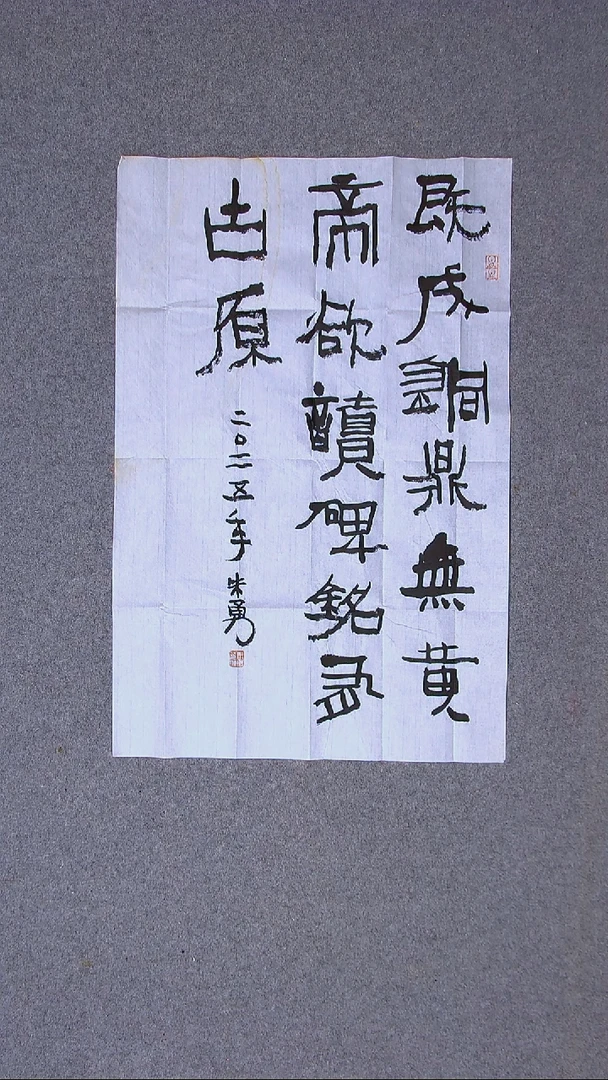 既成銅鼎無黄
帝欲讀碑銘
古原
二〇二五年 朱勇